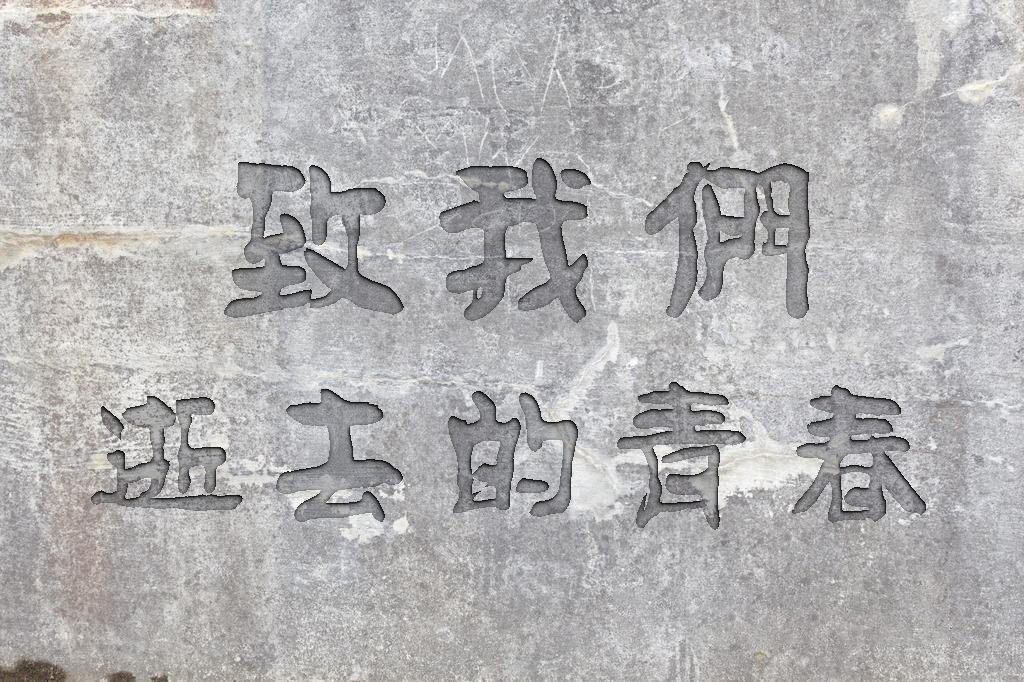 致我們
逝去的青春